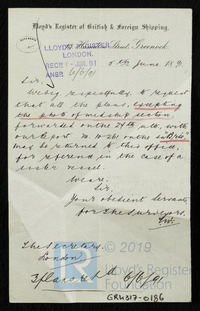 Lloyd's Register of British & Foreign Shipping.
Street, Greenock
LLOYD'S REGISTER
LONDON.
REC'D JUL 91
ANSR 6/6/91
5th June 1891
Sir,
We beg respectfully to request
that all the plans, excepting
the of midship section
forwarded on the 29th ult, with
our Report No on the
may be returned to this office,
for reference in the case of a
sister vessel.
We are,
Sir,
Your obedient Servants
for the Surveyors.
The Secretary,
London
3 plans 6/6/91
© 2019
Lloyd's Register
Foundation
GRK317-0186